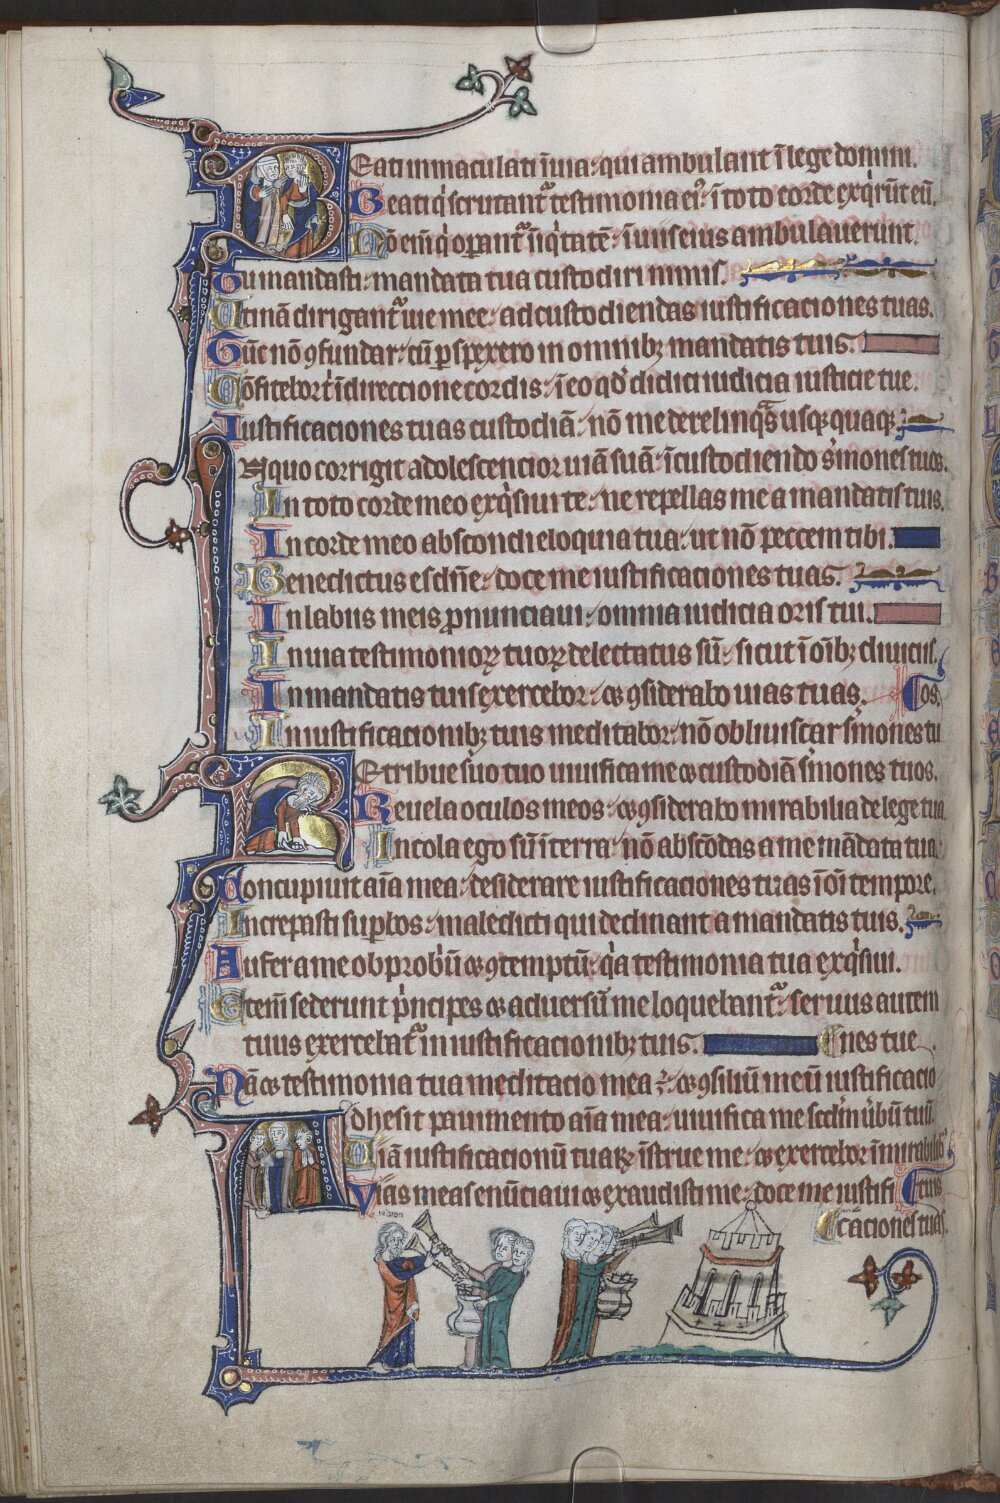 Beati inmaculati ī uia : qui ambulant ī lege domini.
Beati q̇ scrutant᷑ testimonia eiꝰ : ī toto corde exq̇rūt eū.
Nō enī q̇ oꝑant᷑ īiq̇tatē : ī uiis eius ambulauerunt.
Tu mandasti : mandata tua custodiri nimis.
Utinā dirigant᷑ uie mee : ad custodiendas iustificaciones tuas.
Tūc nō ꝯfundar : cū ꝑspexero in omnibꝫ mandatis tuis.
Cōfitebor t̄ ī direccione cordis : ī eo qd̄ didici iudicia iusticie tue.
Iustificaciones tuas custodiā : nō me derelinqᵃs usqꝫ quaqꝫ.
In quo corrigit adolescencior uiā suā : ī custodiendo s̄mones tuos.
In toto corde meo exq̇siui te : ne repellas me a mandatis tuis.
In corde meo abscondi eloquia tua : ut nō peccem tibi.
Benedictus es dn̄e : doce me iustificaciones tuas.
In labiis meis ꝓnunciaui : omnia iudicia oris tui.
In uia testimonioꝝ tuoꝝ delectatus sū : sicut ī oībꝫ diuiciis.
In mandatis tuis exercebor : ⁊ ꝯsiderabo uias tuas.
In iustificacionibꝫ tuis meditabor : nō obliuiscar s̄mones tu os.
Retribue s̄uo tuo uiuifica me ⁊ custodiā s̄mones tuos.
Reuela oculos meos : ⁊ ꝯsiderabo mirabilia de lege tua
Incola ego sū ī terra : nō abscōdas a me mādata tua
Concupiuit aīa mea : desiderare iustificaciones tuas ī oī tempore.
Increpasti suꝑbos : maledicti qui declinant a mandatis tuis.
Aufer a me obprobr̄iū ⁊ ꝯtemptū : q̇a testimonia tua exq̇siui.
Etenī sederunt ṗncipes ⁊ aduersū me loquebant᷑ : seruus autem
tuus exercebat᷑ in iustificacionibꝫ tuis.
Nā ⁊ testimonia tua meditacio mea ē : ⁊ ꝯsiliū meū iustificacio nes tue.
Adhesit pauimento aīa mea : uiuifica me scd̄m ūbū tuū.
Uiā iustificacionū tuaꝝ īstrue me : ⁊ exercebor ī mirabilibꝫ tuis
Vias meas enūciaui ⁊ exaudisti me : doce me iustifi
caciones tuas.